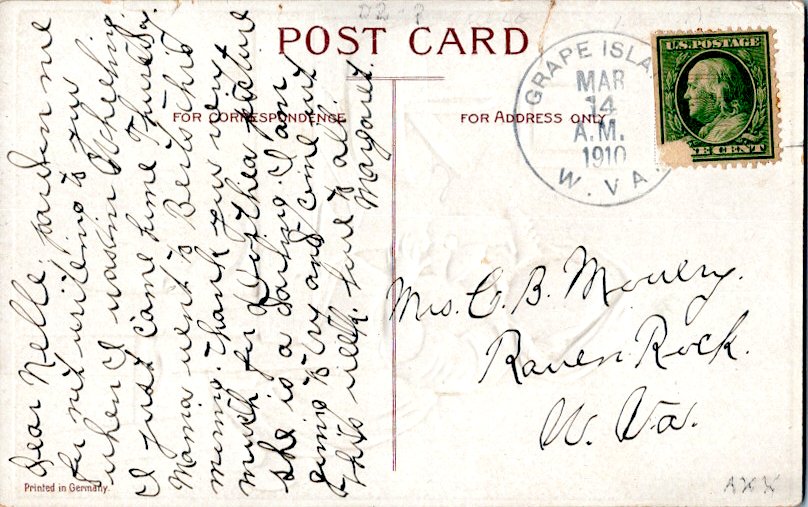 POST CARD
FOR CORRESPONDENCE
FOR ADDRESS ONLY
GRAPE ISLA
MAR
14
A.M.
1910
W. VA.
U.S. POSTAGE
NE CENT
Dear Nelle, pardon me
for not writing to you
when I was in Wheeling
I just came home Thursday.
Mama went to Berts this
morning. Thank you very
much for Dorthea picture
she is a darling. I am
going to try and come out
this week. love to all.
Margaret.
Mrs. C. B. Mowery.
Raven Rock.
W. Va.
Printed in Germany.